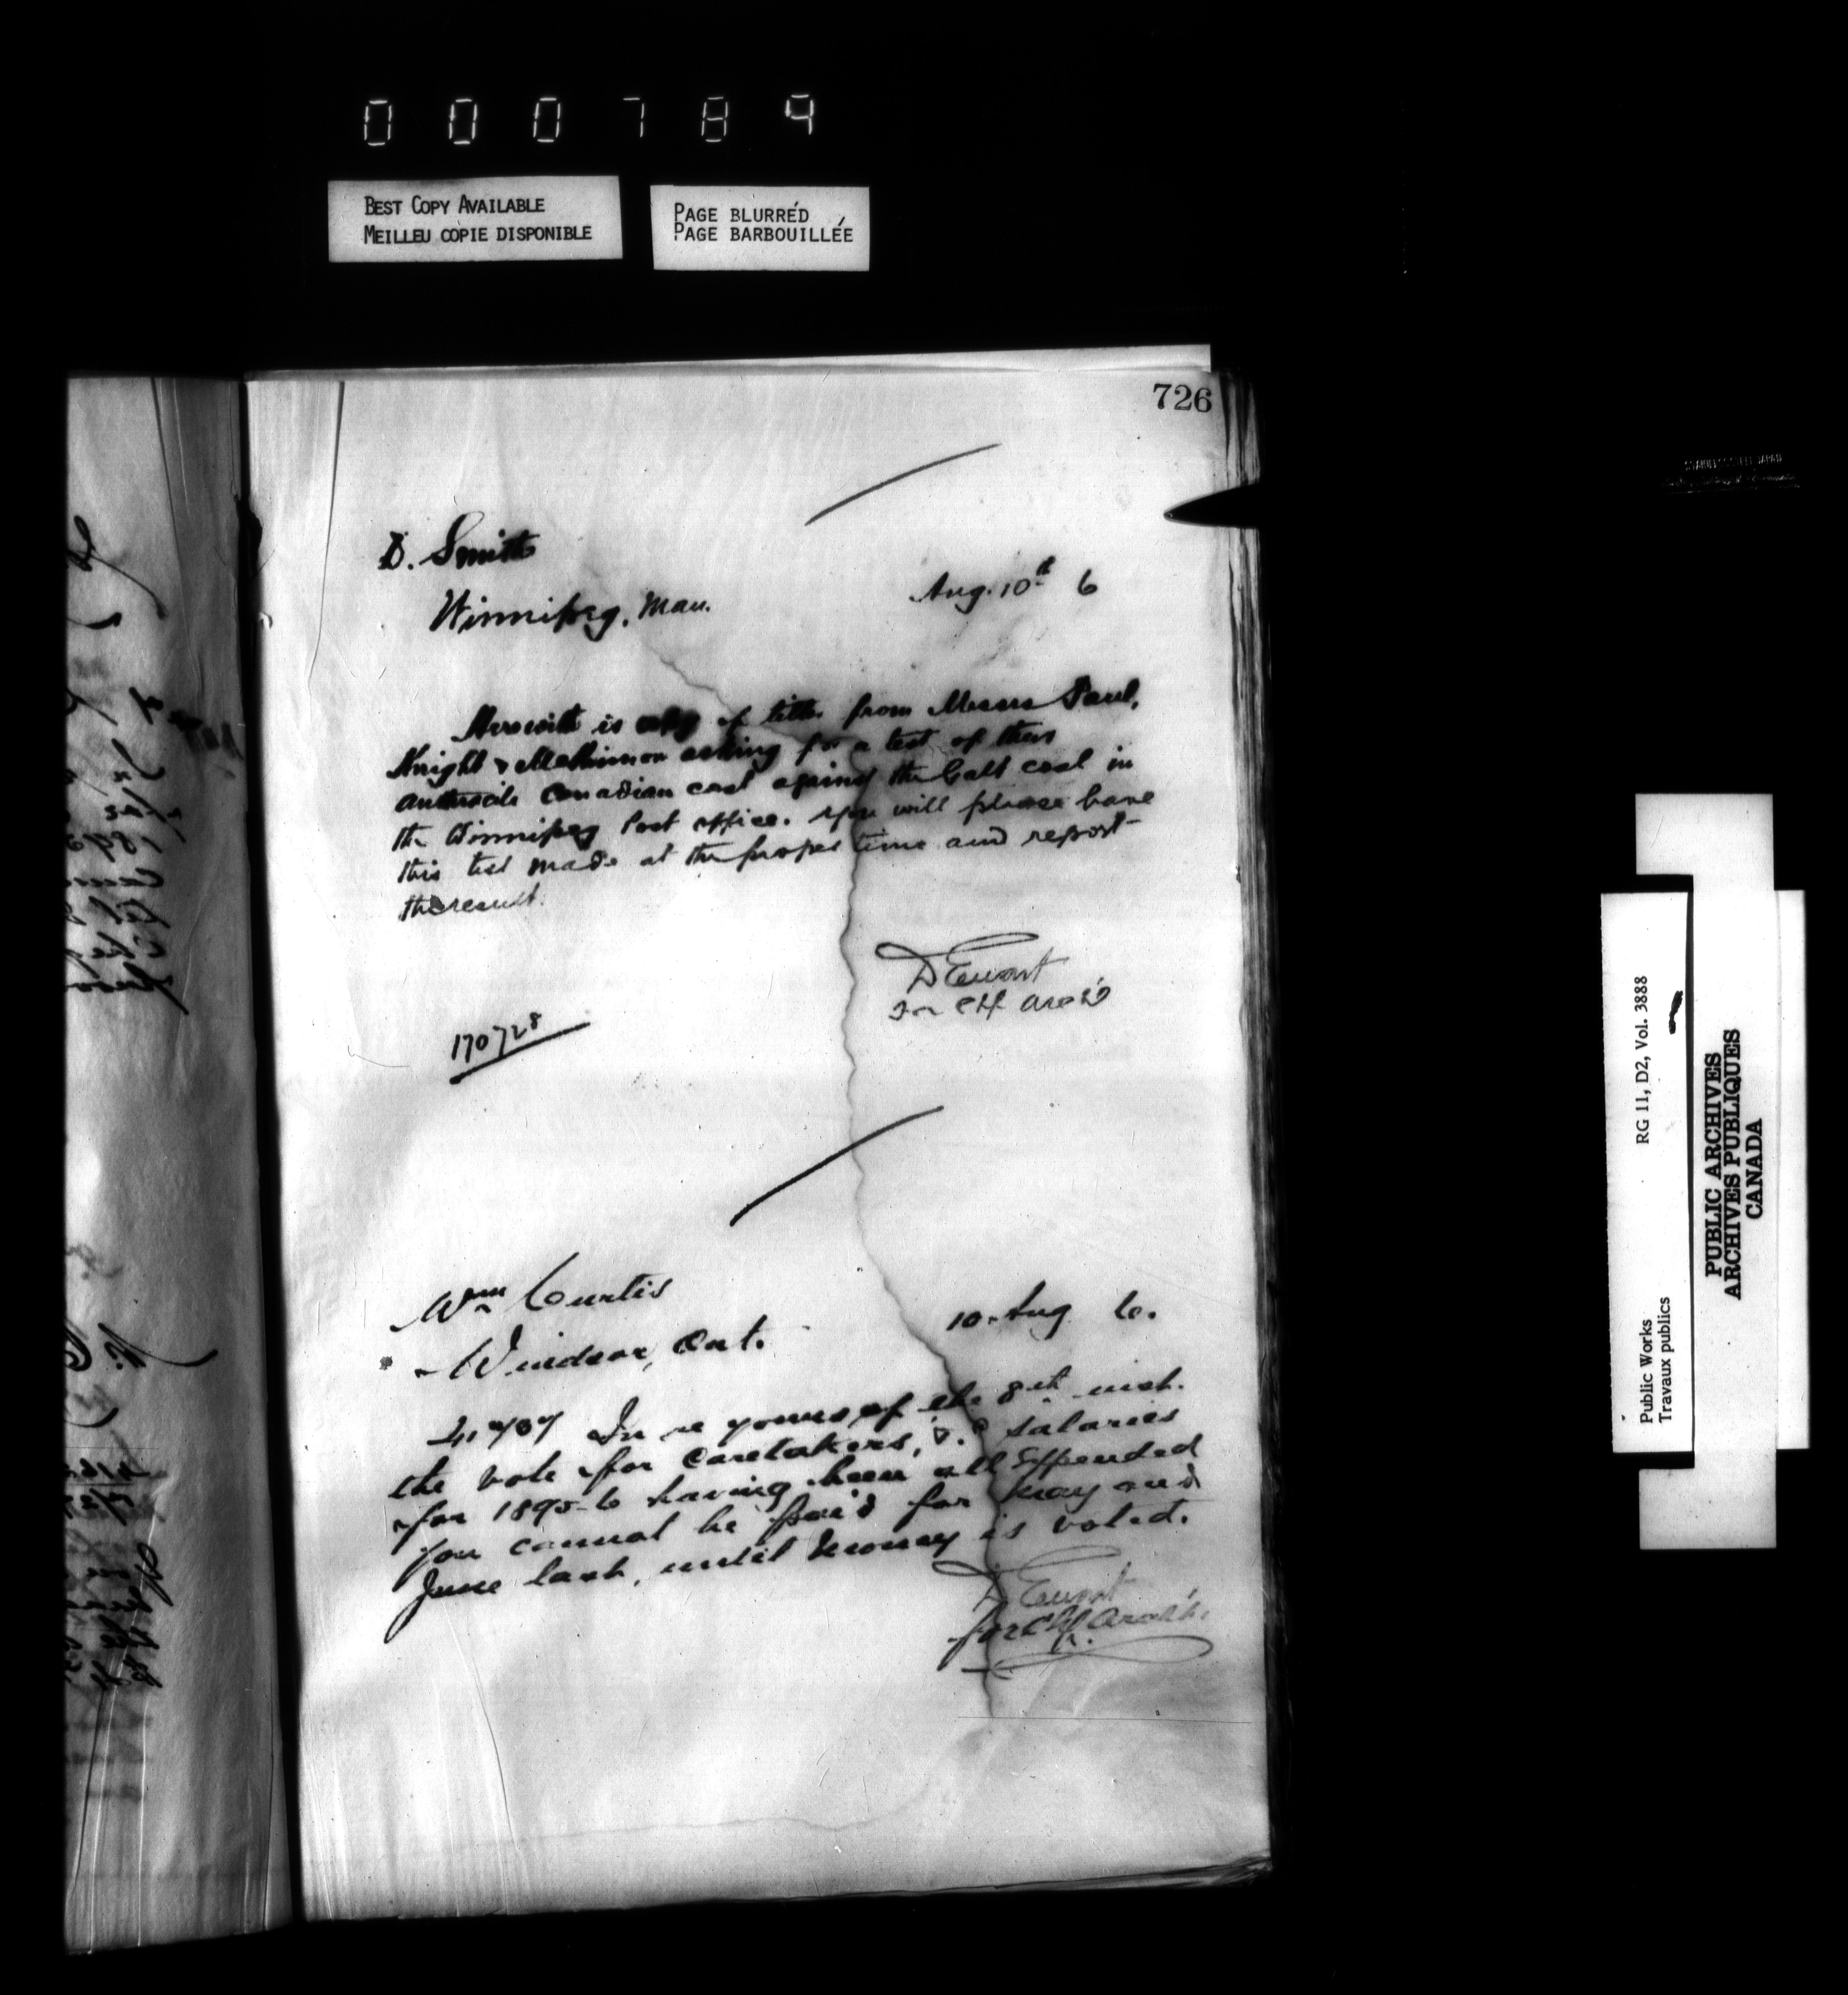 000789
BEST COPY AVAILABLE
MEILLEU COPIE DISPONIBLE
PAGE BLURRÉD
PAGE BARBOUILLÉE
726
D. Smith
Aug. 10th 6
Winnipeg, Man.
Herewith is copy of letter from Messrs Paul,
Knight & McKinnon asking for a test of their
anthracite Canadian coal against the Galt coal in
the Winnipeg Post office. You will please have
this test made at the proper time and report
the result.
D Ewart
for Chf Arch't
170728
Wm Curtis
10 Aug 6.
Windsor, Ont.
In re yours of the 8th inst.
the vote for Caretakers, salaries
for 1895-6 having been all expended
you cannot be paid for May and
June last, until money is voted.
D Ewart
for Chf Archt.
RG 11, D2, Vol. 3888
Public Works
Travaux publics
PUBLIC ARCHIVES
ARCHIVES PUBLIQUES
CANADA